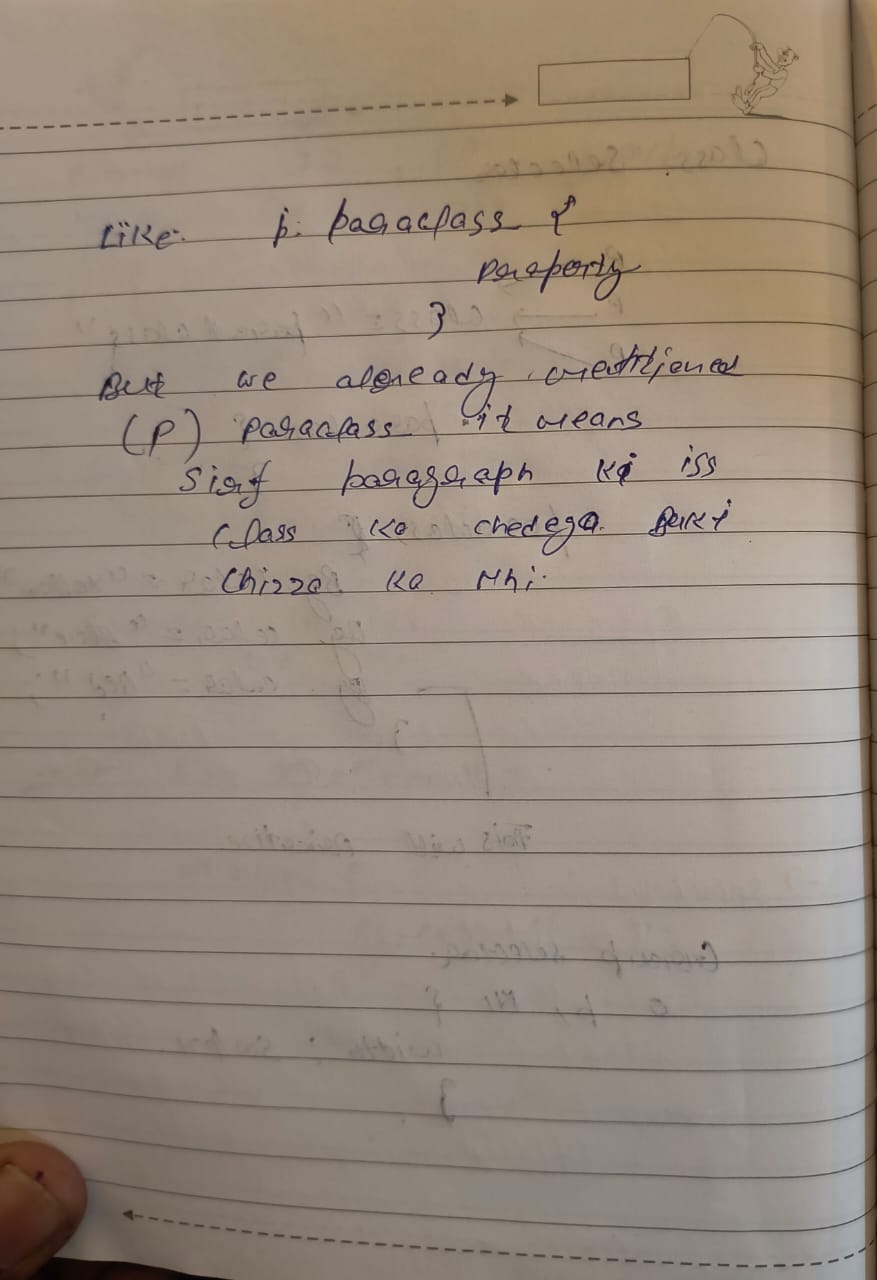 Like:  p. paraclass {
Peroperty
}
But we already mentioned
(P) paraclass it means
Sirf paragraph ki iss
Class ko chedega. Baki
Chizzo ko Nhi.